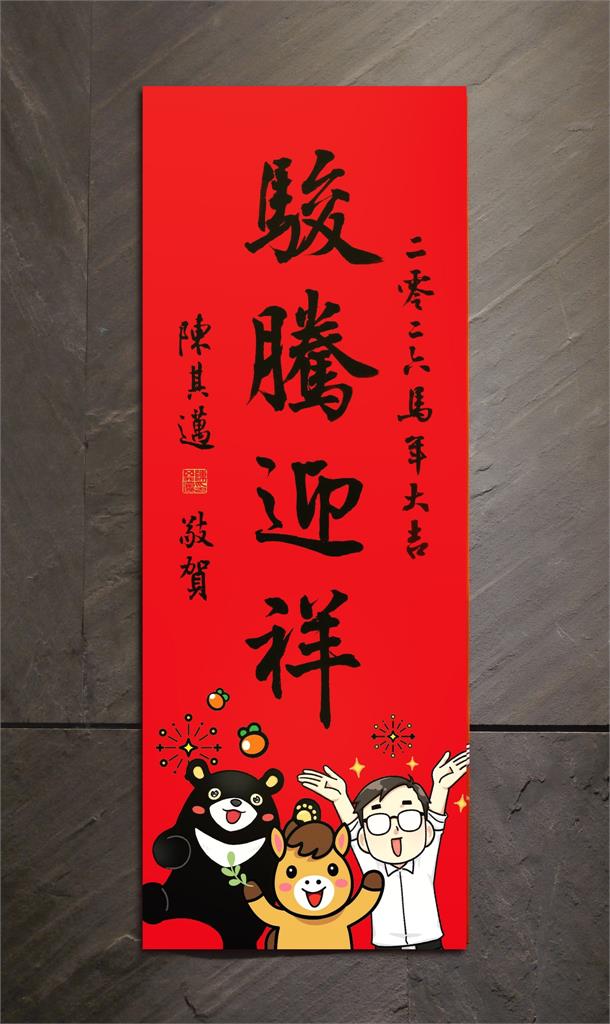 二零二六馬年大吉
駿騰迎祥
陳其邁 敬賀